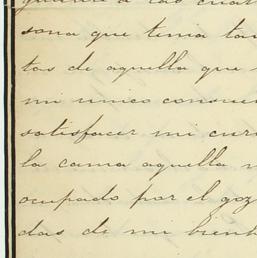 a las cuat
sona que tenia tan
tas de aquella que
mi unico consue
satisfacer mi curi
la cama aquella n
ocupado por el goz
das de mi bienh